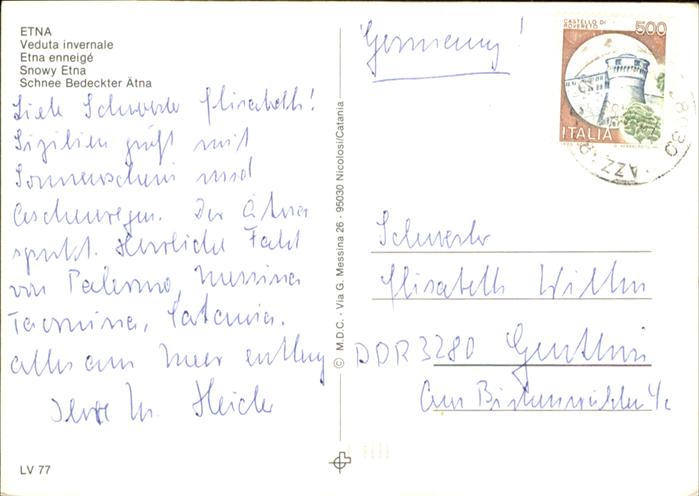 ETNA
Veduta invernale
Etna enneigé
Snowy Etna
Schnee Bedeckter Ätna
Liebe Schwester Elisabeth!
Sizilien grüßt mit
Sonnenschein und
Aschenregen. Der Ätna
spukt. Herrliche Fahrt
von Palermo, Messina
Taormina, Catania.
alles am Meer entlang
Ihre
LV 77
© M.D.C. - Via G. Messina 26 - 95030 Nicolosi/Catania
Germany!
CASTELLO DI
ROVERETO
500
ITALIA
Schwester
Elisabeth
DDR 3280 Genthin
Am